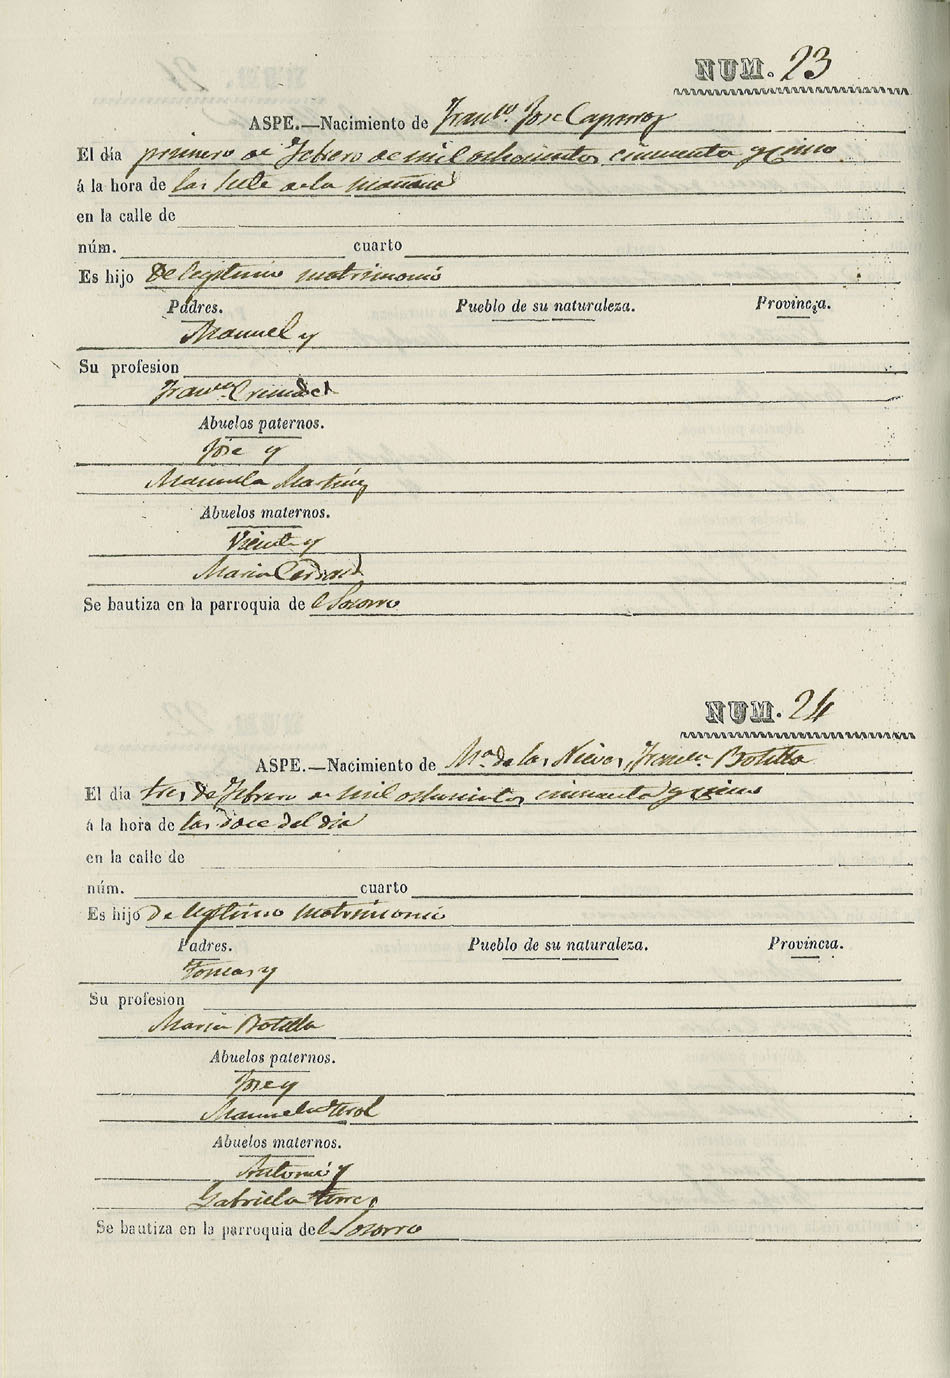 NUM. 23
ASPE.—Nacimiento de Fran.co Jose Caparros
El día primero de Febrero de mil ochocientos cincuenta y cinco
á la hora de las siete de la mañana
en la calle de
núm. cuarto
Es hijo de legitimo matrimonio
Padres. Pueblo de su naturaleza. Provincia.
Manuel y
Su profesion
Fran.ca
Abuelos paternos.
Jose y
Manuela Martinez
Abuelos maternos.
Vicente y
Maria
Se bautiza en la parroquia de el Socorro
NUM. 24
ASPE.—Nacimiento de M.a de las Nieves, Fran.ca Botella
El día tres de Febrero de mil ochocientos cincuenta y cinco
á la hora de las doce del dia
en la calle de
núm. cuarto
Es hijo de legitimo matrimonio
Padres. Pueblo de su naturaleza. Provincia.
Tomas y
Su profesion
Maria Botella
Abuelos paternos.
Jose y
Manuela Terol
Abuelos maternos.
Antonio y
Gabriela
Se bautiza en la parroquia de el Socorro